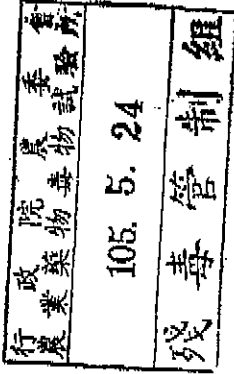 行政院農委會
農業藥物毒物試驗所
105. 5. 24
殘毒管制組